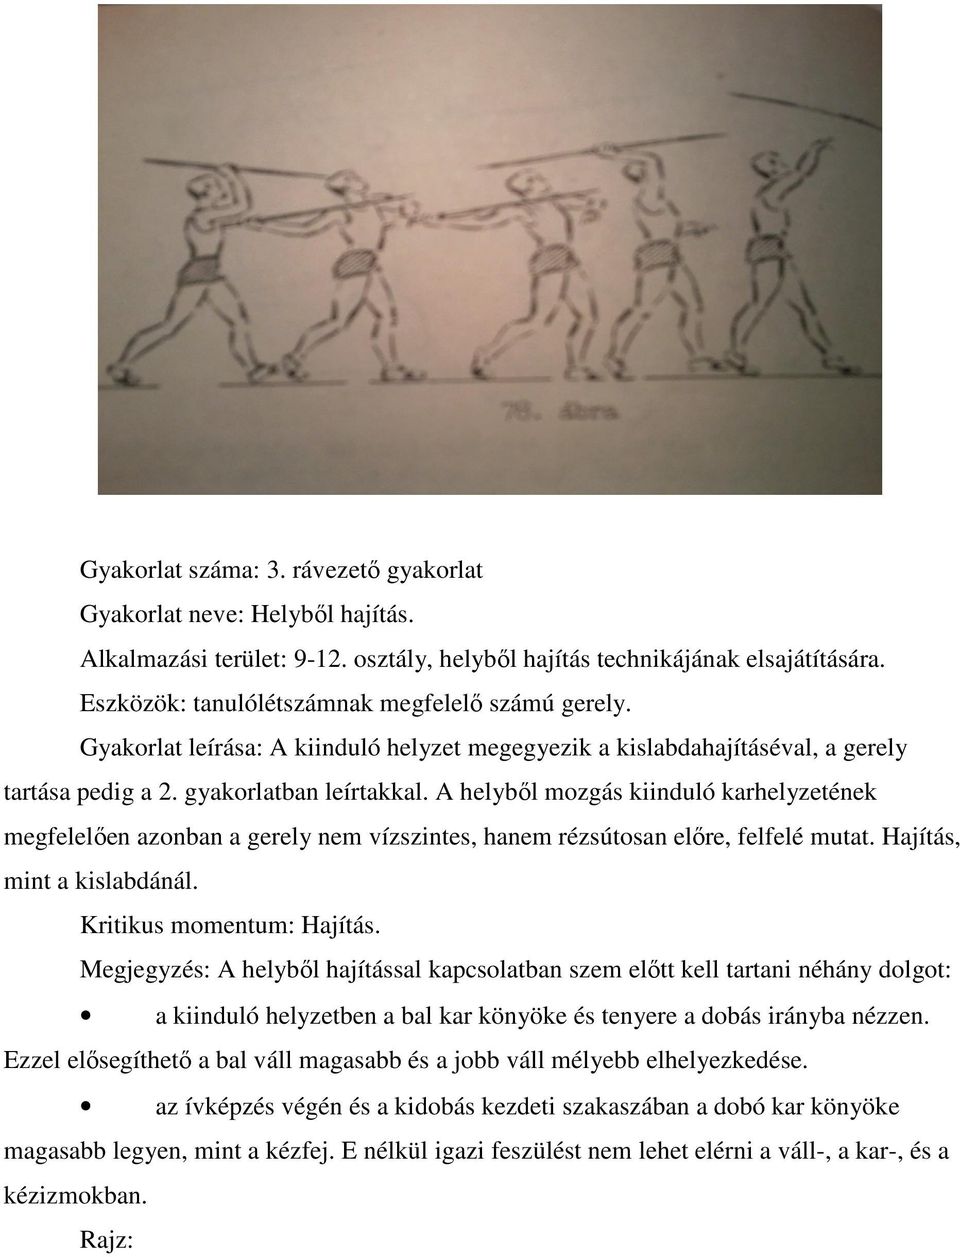 78. ábra
Gyakorlat száma: 3. rávezető gyakorlat
Gyakorlat neve: Helyből hajítás.
Alkalmazási terület: 9-12. osztály, helyből hajítás technikájának elsajátítására.
Eszközök: tanulólétszámnak megfelelő számú gerely.
Gyakorlat leírása: A kiinduló helyzet megegyezik a kislabdahajításéval, a gerely
tartása pedig a 2. gyakorlatban leírtakkal. A helyből mozgás kiinduló karhelyzetének
megfelelően azonban a gerely nem vízszintes, hanem rézsútosan előre, felfelé mutat. Hajítás,
mint a kislabdánál.
Kritikus momentum: Hajítás.
Megjegyzés: A helyből hajítással kapcsolatban szem előtt kell tartani néhány dolgot:
• a kiinduló helyzetben a bal kar könyöke és tenyere a dobás irányba nézzen.
Ezzel elősegíthető a bal váll magasabb és a jobb váll mélyebb elhelyezkedése.
• az ívképzés végén és a kidobás kezdeti szakaszában a dobó kar könyöke
magasabb legyen, mint a kézfej. E nélkül igazi feszülést nem lehet elérni a váll-, a kar-, és a
kézizmokban.
Rajz: